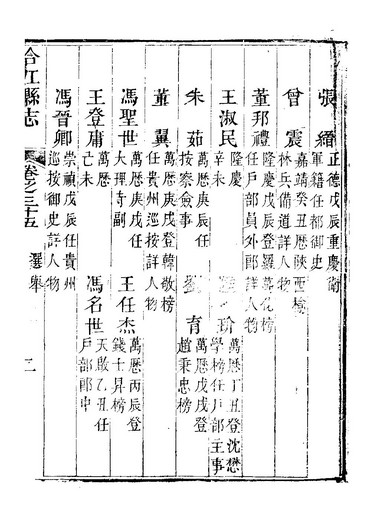 張縉 正德戊辰重慶衛
軍籍任都御史
曾震 嘉靖癸丑歷陝西榆
林兵備道詳人物
董邦禮 隆慶戊辰登羅萬化榜
任戶部員外郎詳人物
王淑民 隆慶
辛未
瑜 萬歷丁丑登沈懋
學榜任戶部主事
朱茹 萬歷庚戌任
按察僉事
劉育 萬歷戊戌登
趙秉忠榜
董翼 萬歷庚戌登韓敬榜
任貴州巡按詳人物
馮聖世 萬歷庚戌任
大理寺副
王任杰 萬歷丙辰登
錢士昇榜
王登庸 萬歷
己未
馮名世 天啟乙丑任
戶部郎中
馮晉卿 崇禎戊辰任貴州
巡按御史詳人物
合江縣志 卷之三十五 選舉 三